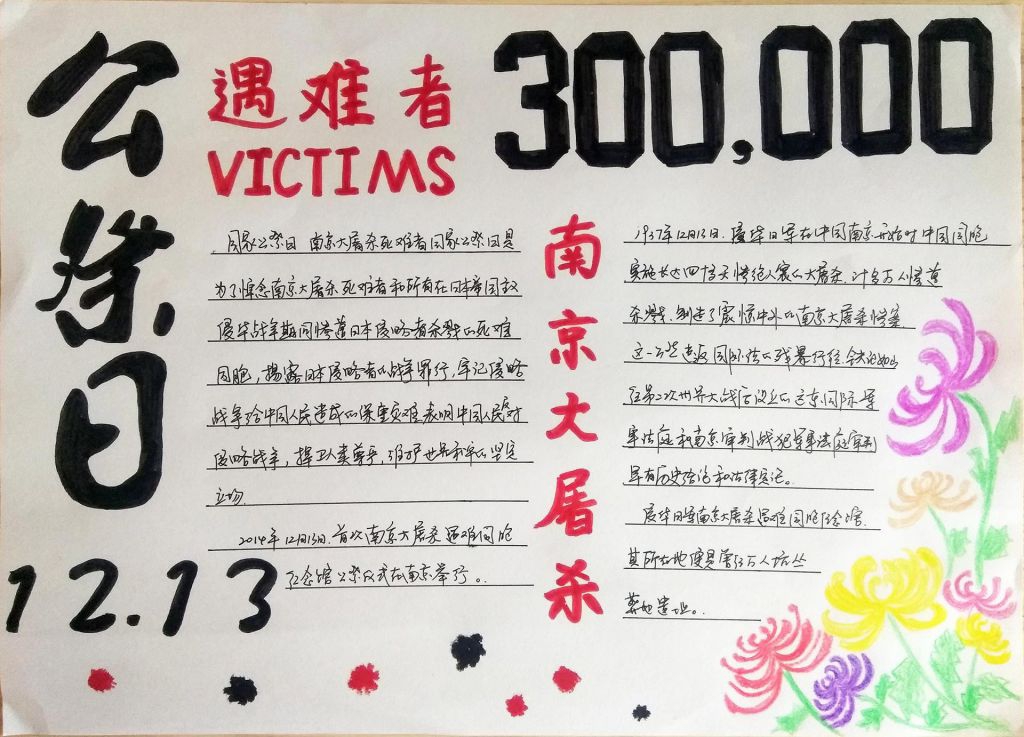 公祭日
12.13
遇难者
VICTIMS
300,000
国家公祭日 南京大屠杀死难者国家公祭日是
为了悼念南京大屠杀死难者和所有在日本帝国主义
侵华战争期间惨遭日本侵略者杀戮的死难
同胞，揭露日本侵略者的战争罪行，牢记侵略
战争给中国人民造成的深重灾难，表明中国人民反对
侵略战争，捍卫人类尊严，维护世界和平的坚定
立场
2014年12月13日.首次南京大屠杀遇难同胞
纪念馆公祭仪式在南京举行。
南京大屠杀
1937年12月13日.侵华日军在中国南京开始对中国同胞
实施长达四十多天惨绝人寰的大屠杀，计多万人惨遭
杀戮，制造了震惊中外的南京大屠杀惨案
这一公然违反国际法的残暴行径，铁证如山
经第二次世界大战后设立的远东国际军
事法庭和南京审判战犯军事法庭审判
具有历史结论和法律定论。
侵华日军南京大屠杀遇难同胞纪念馆
其所在地便是万人坑丛
葬地遗址。